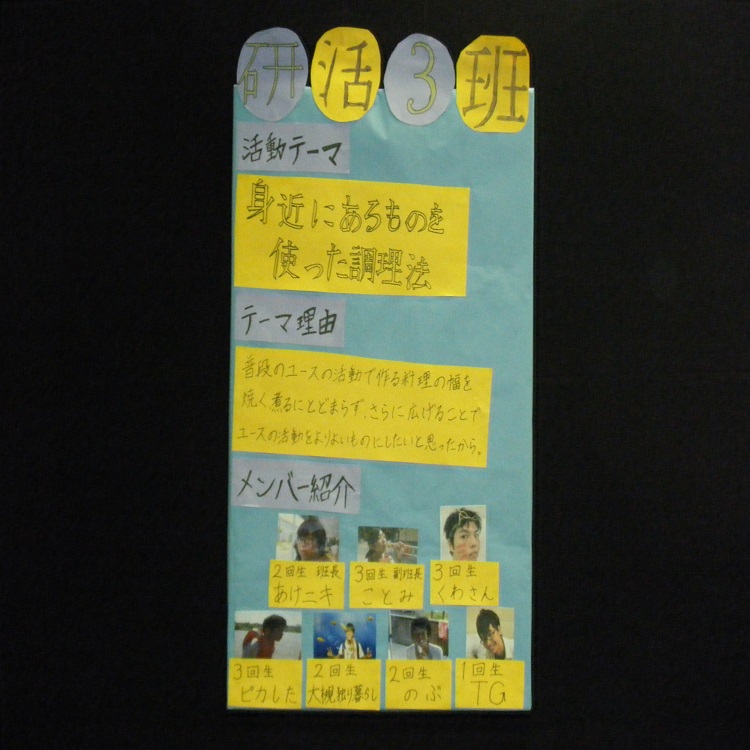 研活3班
活動テーマ
身近にあるものを
使った調理法
テーマ理由
普段のユースの活動で作る料理の幅を
焼く煮るにとどまらず、さらに広げることで
ユースの活動をよりよいものにしたいと思ったから。
メンバー紹介
2回生 班長
あけニキ
3回生 副班長
ことみ
3回生
くわさん
3回生
ピカした
2回生
大槻独り暮らし
2回生
のぶ
1回生
TG